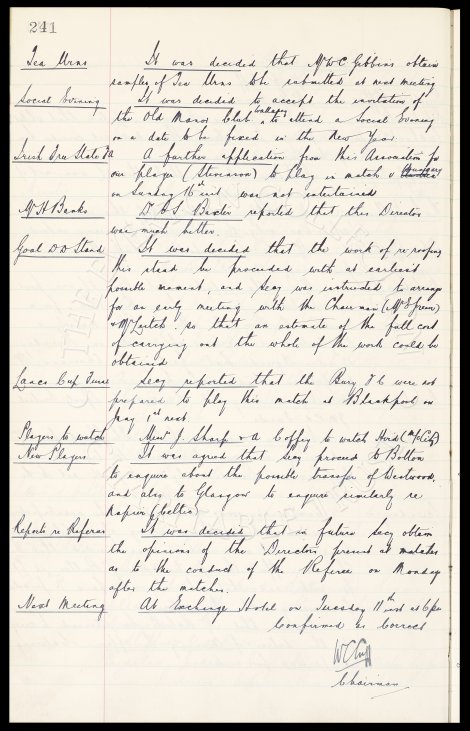 241
Tea Urns It was decided that Mr W C Gibbins obtain
samples of Tea Urns to be submitted at next meeting
Social Evening It was decided to accept the invitation of
the Old Manor Club Wallasey to attend a Social Evening
on a date to be fixed in the New Year.
Irish Free State FA A further application from this Association for
our player (Stevenson) to play in match v Hungary
on Sunday 16th inst was not entertained
Mr H Banks Dr C S Baxter reported that this Director
was much better.
Goal D D Stand It was decided that the work of re-roofing
this stand be proceeded with at earliest
possible moment, and Secy was instructed to arrange
for an early meeting with the Chairman (Mr E Green)
& Mr Leitch so that an estimate of the full cost
of carrying out the whole of the work could be
obtained
Lancs Cup Secy reported that the Bury F C were not
prepared to play this match at Blackpool on
May 1st next.
Players to watch Messrs J. Sharp & A Coffey to watch Herd (M/City)
New Players It was agreed that Secy proceed to Bolton
to enquire about the possible transfer of Westwood,
and also to Glasgow to enquire similarly re
Napier (Celtic)
Reports re Referees It was decided that in future Secy obtain
the opinions of the Directors present at matches
as to the conduct of the Referee on Monday
after the matches.
Next Meeting At Exchange Hotel on Tuesday 11th inst at 6pm
Confirmed as Correct
W C Cuff
Chairman